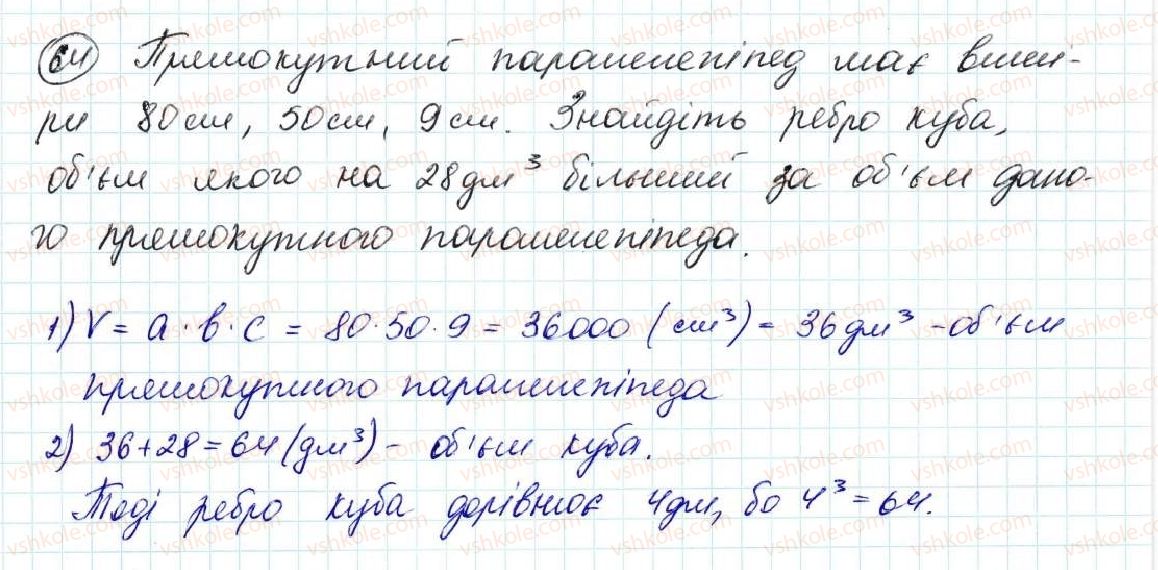 64 Прямокутний паралелепіпед має вимі-
ри 80 см, 50 см, 9 см. Знайдіть ребро куба,
об'єм якого на 28 дм³ більший за об'єм дано-
го прямокутного паралелепіпеда.
1) V = a · b · c = 80 · 50 · 9 = 36000 (см³) = 36 дм³ - об'єм
прямокутного паралелепіпеда
2) 36 + 28 = 64 (дм³) - об'єм куба.
Тоді ребро куба дорівнює 4 дм, бо 4³ = 64.